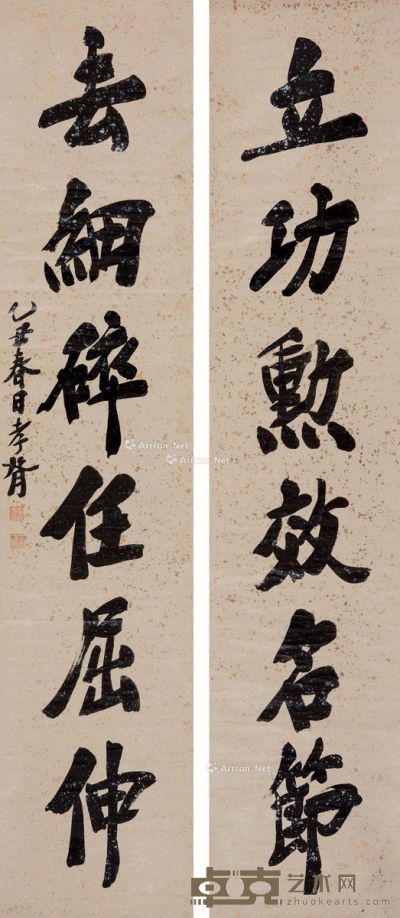 立功勲效名節
去細碎任屈伸
乙丑春日孝胥
Artron.Net
Artron.Net
Artron.Net
卓克艺术网
zhuokearts.com